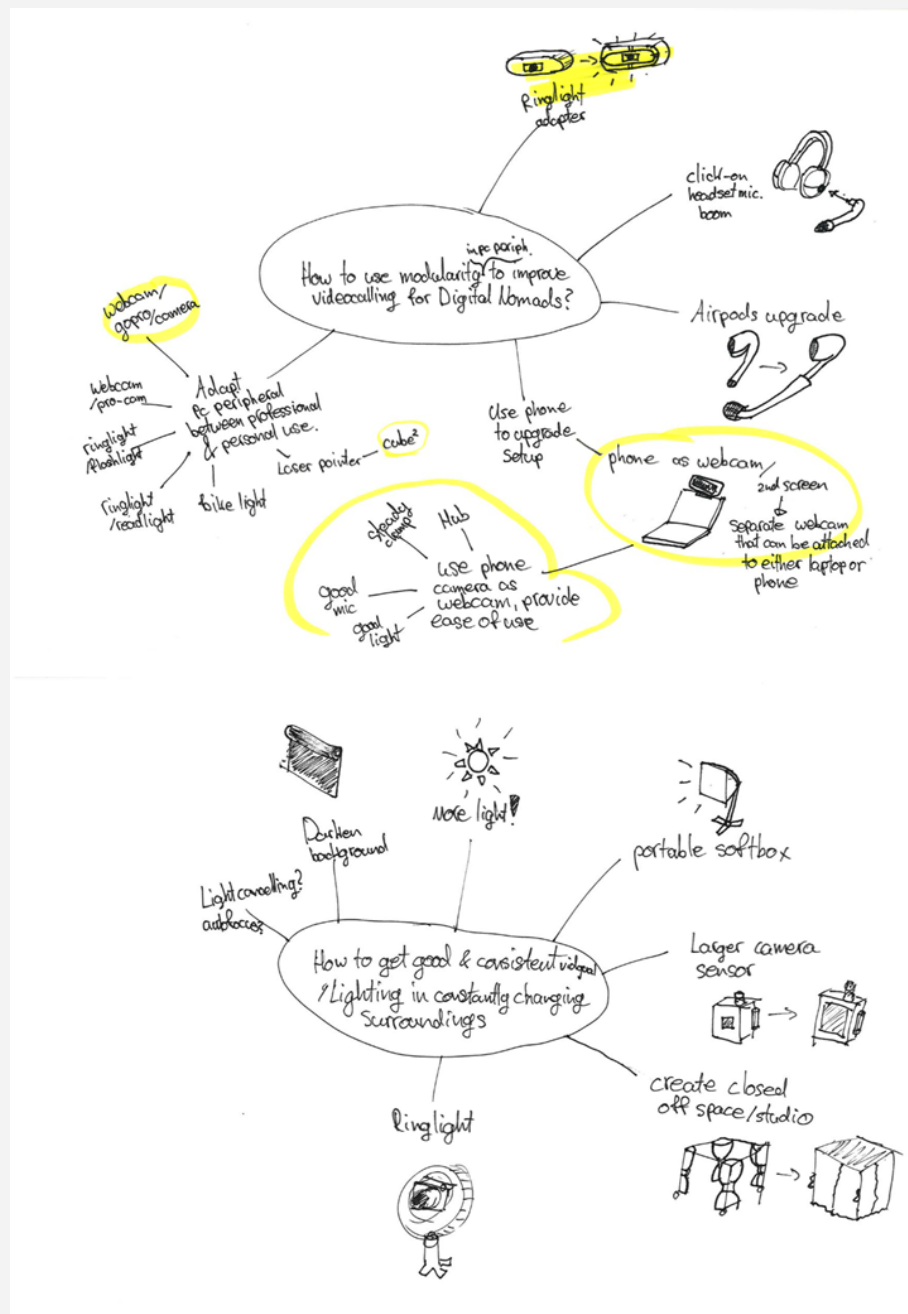 Ringlight
adapter
click-on
headset mic.
boom
in pc periph.
How to use modularity to improve
videocalling for Digital Nomads?
Airpods upgrade
webcam/
gopro/camera
webcam
/pro-cam
ringlight
/flashlight
ringlight
/readlight
Adapt
pc peripheral
between professional
& personal use.
bike light
Laser pointer
cube²
Use phone
to upgrade
Setup
phone as webcam/
2nd screen
separate webcam
that can be attached
to either laptop or
phone
steady
clamp
Hub
good
mic
good
light
use phone
camera as
webcam, provide
ease of use
Darken
background
More light!
portable softbox
Light cancelling?
Larger camera
sensor
How to get good & consistent
/Lighting in constantly changing
surroundings
create closed
off space/studio
Ringlight